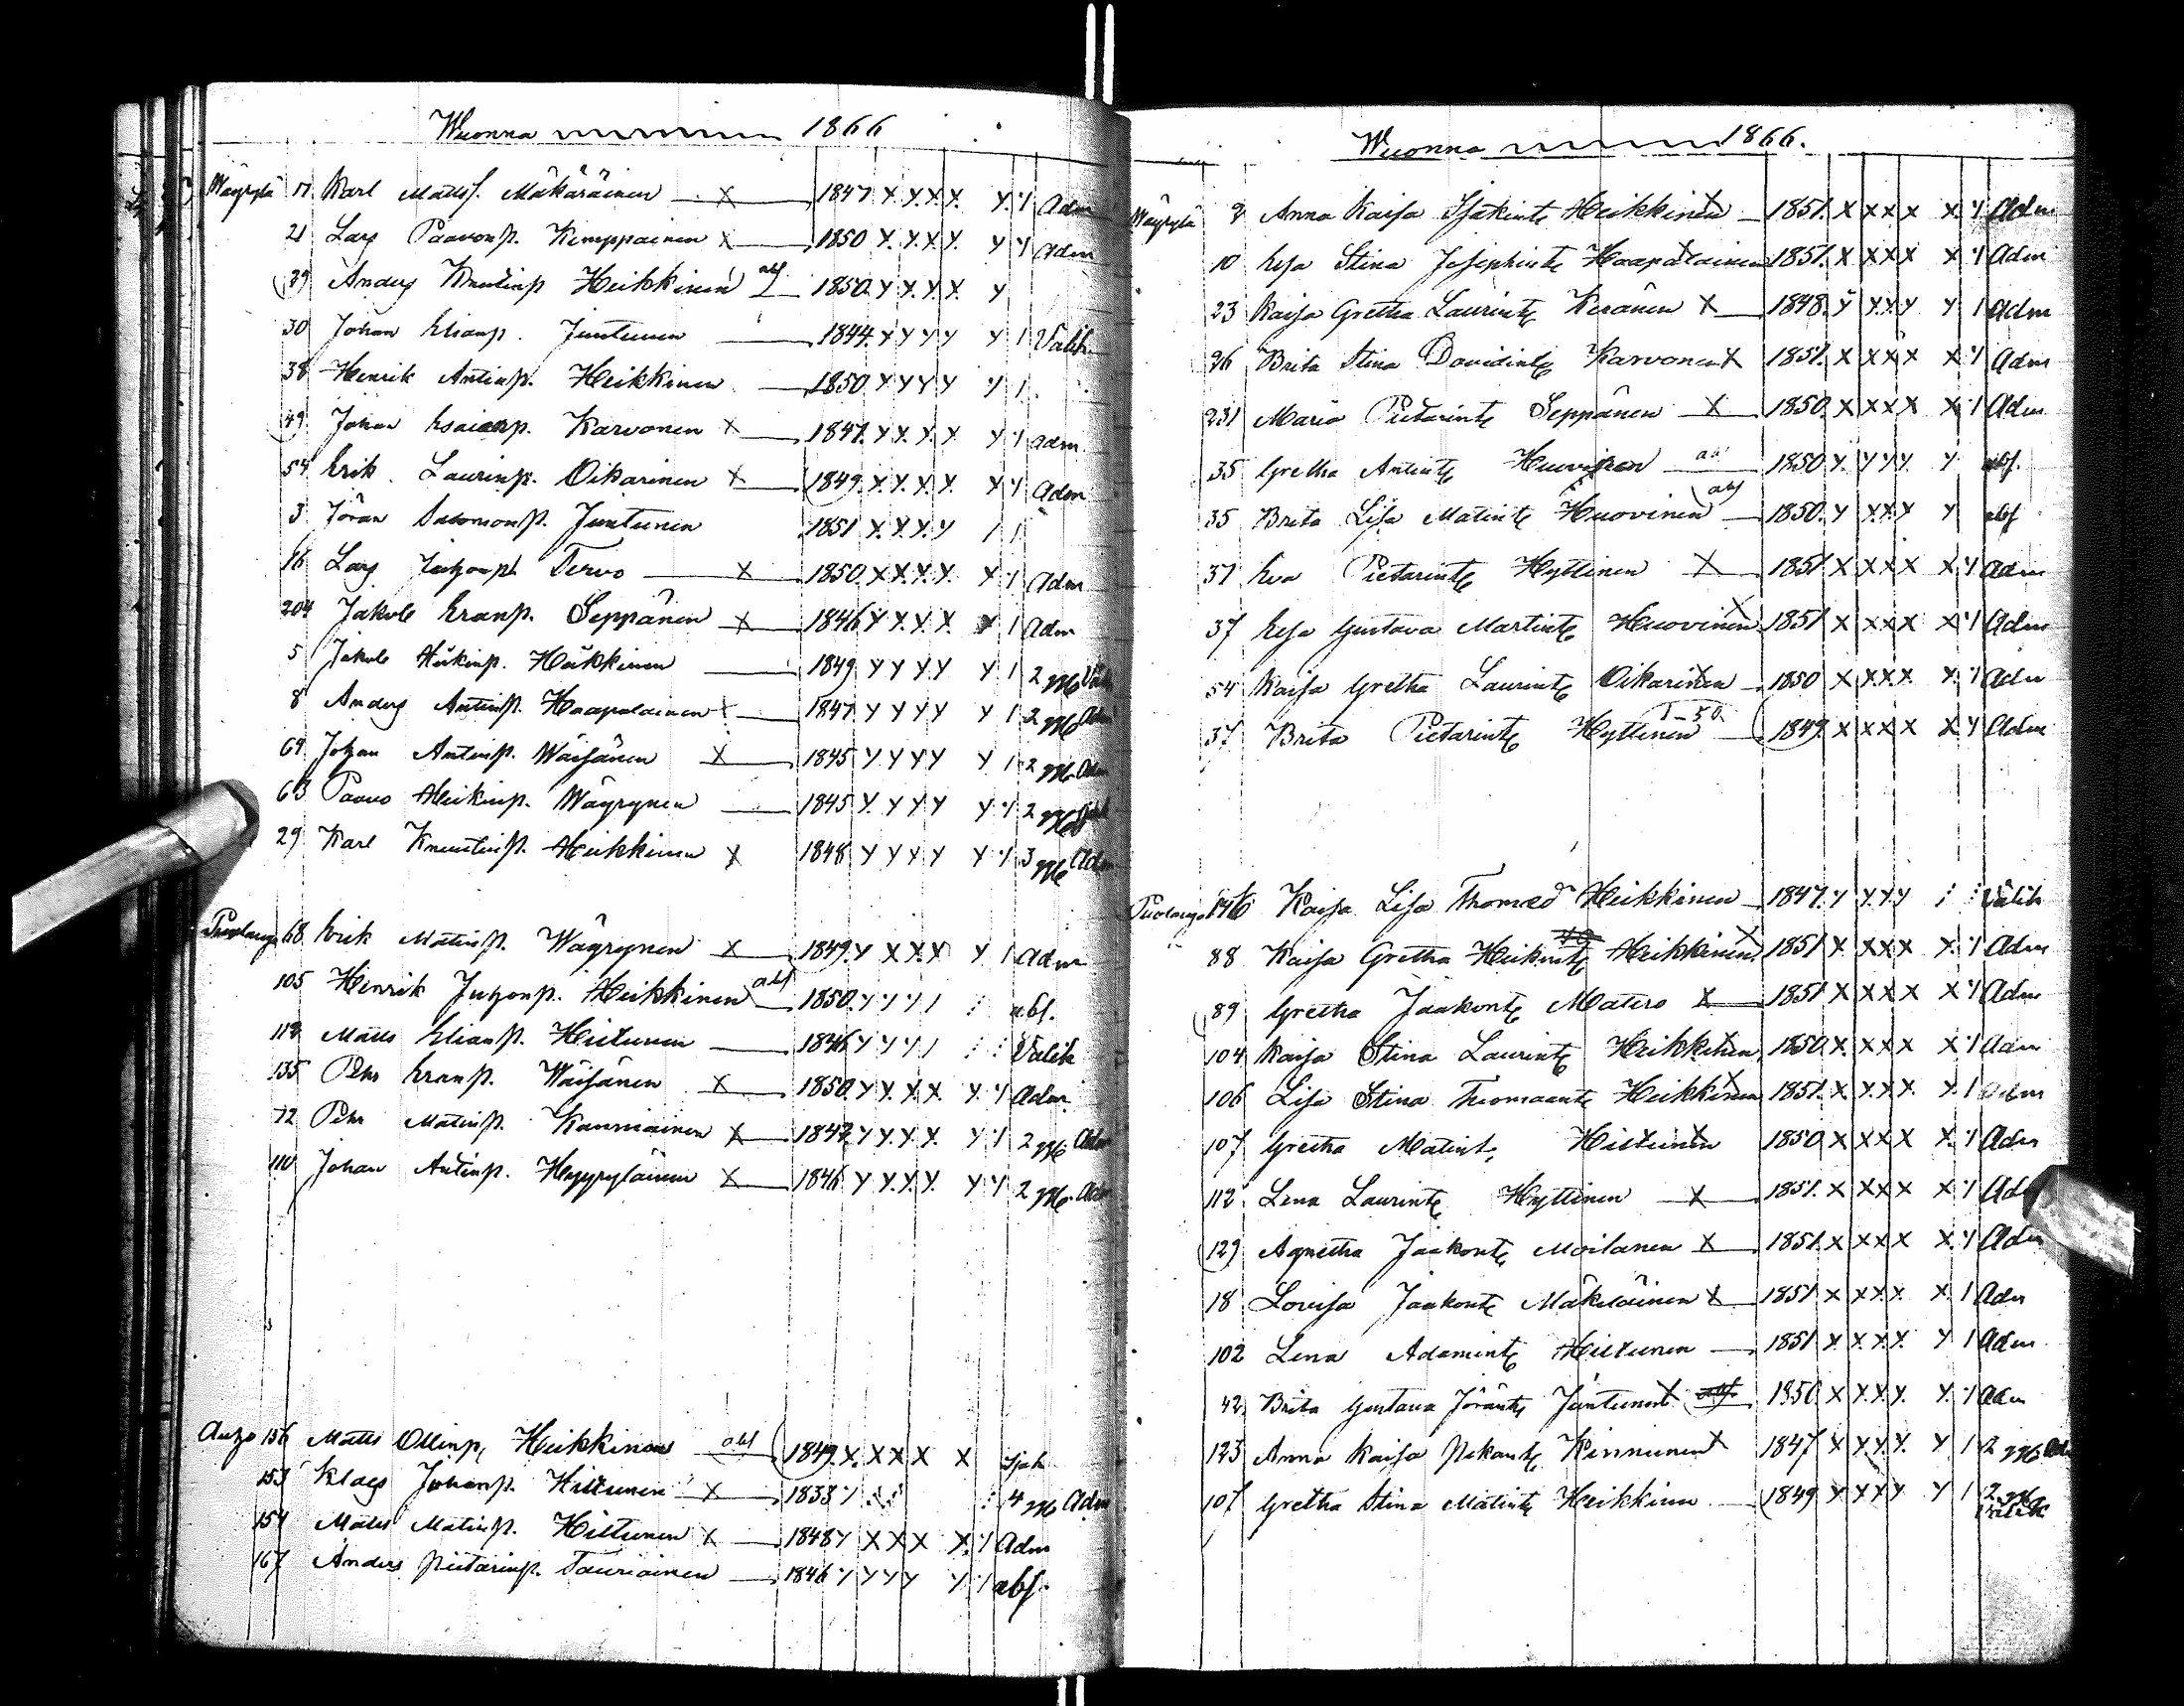 Wuonna 1866
Wäyrylä 17 Karl Matts. Mäkäräinen X 1847 X X X X X 1 Adm
21 Lars Paavonp. Kemppainen X 1850 Y. Y. X Y. Y Y Adm
29 Anders Knutinp Heikkinen abs 1850 Y Y. X. X. Y
30 Johan Elianp. Juntunen 1844 Y Y Y Y Y 1 Välik.
38 Henrik Antinp. Heikkinen 1850 Y Y Y Y Y 1
49 Johan Esaianp. Karvonen X 1847. Y X. Y. Y Y 1 Adm
54 Erik Laurinp. Oikarinen X 1849. X. Y. X. X. X Y Adm
3 Göran Salomonp. Juntunen 1851 X. Y. Y. Y 1 1
16 Lars Juhonp. Tervo X 1850 X X X. Y. Y 1 Adm
204 Jakob Eranp. Seppänen X 1846 Y Y. Y. X. Y 1 Adm
5 Jakob Heikinp. Häkkinen 1849 Y Y Y Y Y 1 2 M Välik
8 Anders Antinp. Haapalainen X 1847 Y Y Y Y Y 1 2 M Adm
69 Johan Antinp. Wäisänen X 1845 Y Y Y Y Y 1 2 M. Adm
63 Paavo Heikinp. Wäyrynen 1845 Y. Y Y Y Y Y 2 M
29 Karl Knuutinp. Heikkinen X 1848 Y Y Y Y Y Y 3 M Adm
Puolango 68 Erik Matinp. Wäyrynen X 1849 Y X X X Y 1 Adm
105 Henrik Juhonp. Heikkinen abs 1850. Y Y Y 1 abs.
112 Matts Elianp. Heitunen 1846 Y Y Y 1 Välik
135 Pehr Eranp. Wäisänen X 1850. Y Y. X X. Y. Y Adm.
72 Pehr Matinp. Kanniainen X 1847 Y Y Y. X. Y Y 2 M Adm
110 Johan Antinp. Hyyryläinen X 1846 Y Y. Y. Y. Y Y 2 M. Adm
Auho 156 Matts Ollinp. Heikkinen abs 1849. X. X X X X sjuk
153 Klaes Johanp. Hiltunen X 1833 1 4 M Adm
154 Matts Matinp. Hiltunen X 1848 Y X X X X. 1 Adm
167 Anders Pietarinp. Tauriainen 1846 Y Y Y Y Y 1 abs.
Wuonna 1866.
Wäyrylä 2 Anna Kaisa Isakinte Heikkinen X 1851. X X X X X. Y Adm
10 Eesa Stina Josephinte Haapalainen 1851. X X X X X Y Adm
23 Kaisa Gretha Laurinte Keränen X 1848. Y Y. Y. Y Y 1 Adm
26 Brita Stina Davidinte Karvonen X 1851. X X X X X Y Adm
231 Maria Pietarinte Seppänen X 1850. X X X X X 1 Adm
35 Gretha Antinte Huovinen abs 1850 Y. Y Y Y. Y abs.
35 Brita Lisa Matinte Huovinen abs 1850. Y Y. X. Y Y abs
37 Eva Pietarinte Hyttinen X 1851 X X X X X Y Adm
37 Eesa Gustava Martinte Huovinen X 1851 X X X X X 1 Adm
54 Kaisa Gretha Laurinte Oikarinen 1850 X Y. X. X Y. 1 Adm
37 Brita Pietarinte Hyttinen 1-50. 1849. X X X X X Y Adm
Puolango 146 Kaisa Lisa Thomasd Heikkinen 1847. Y Y. Y. Y Välik
88 Kaisa Gretha Heikinte Heikkinen X 1851 X. X X X X. 1 Adm
89 Gretha Jaakonte Matero X 1851 X X X X X 1 Adm
104 Kaisa Stina Laurinte Heikkinen 1850. X. X X X X 1 Adm
106 Lisa Stina Thomaante Heikkinen X 1851. X Y. Y. X. Y. 1 Adm
107 Gretha Matint. Hiltunen X 1850 X. X X X X. 1 Adm
112 Lena Laurinte Hyttinen X 1851. X X X X X 1 Adm
129 Agnetha Jaakonte Moilanen X 1851. X X X X X. 1 Adm
18 Lovisa Jaakonte Mäkeläinen X 1851 X X. Y. X X. 1 Adm
102 Lena Adaminte Hiltunen 1851 X. X X. X. Y 1 Adm
42 Brita Gustava Jöränte Juntunen X abs. 1850 X Y. Y. Y. Y. 1 Adm
123 Anna Kaisa Pekante Kinnunen X 1847 X Y. Y. Y. Y 1 2 M Adm
107 Gretha Stina Matinte Heikkinen 1849 Y Y Y Y Y 1 2 M Välik